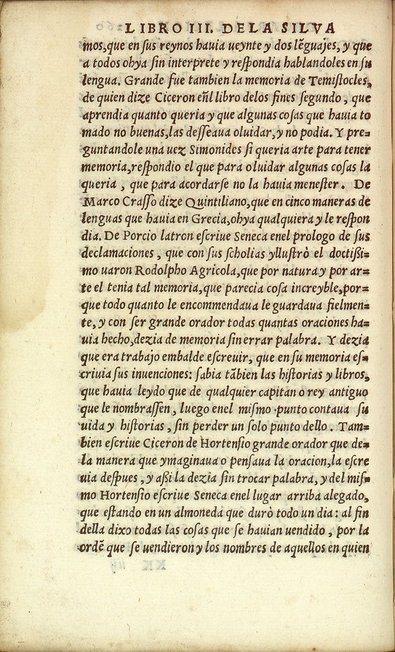 LIBRO III. DELA SILVA
mos, que en sus reynos havia ueynte y dos lẽguajes, y que
a todos ohya sin interprete y respondia hablandoles en su
lengua. Grande fue tambien la memoria de Temistocles,
de quien dize Ciceron eñl libro delos fines segundo, que
aprendia quanto queria y que algunas cosas que havia to
mado no buenas, las desseaua oluidar, y nò podia. Y pre-
guntandole una vez Simonides si queria arte para tener
memoria, respondio el que para oluidar algunas cosas la
queria, que para acordarse no la havia menester. De
Marco Crasso dize Quintiliano, que en cinco maneras de
lenguas que havia en Grecia, ohya qualquiera y le respon
dia. De Porcio latron escriue Seneca enel prologo de sus
declamaciones, que con sus scholias yllustrò el doctißi-
mo uaron Rodolpho Agricola, que por natura y por ar-
te el tenia tal memoria, que parecia cosa increyble, por-
que todo quanto le encommendaua le guardaua fielmen-
te, y con ser grande orador todas quantas oraciones ha-
uia hecho, dezia de memoria sin errar palabra. Y dezia
que era trabajo embalde escreuir, que en su memoria es-
criuia sus inuenciones: sabia tãbien las historias y libros,
que hauia leydo que de qualquier capitan o rey antiguo
que le nombrassen, luego enel mismo punto contaua su
uida y historias, sin perder un solo punto dello. Tam-
bien escriue Ciceron de Hortensio grande orador que de-
la manera que ymaginaua o pensaua la oracion, la escre
uia despues, y aßi la dezia sin trocar palabra, y del mis-
mo Hortensio escriue Seneca enel lugar arriba alegado,
que estando en un almoneda que durò todo un dia: al fin
della dixo todas las cosas que se hauian uendido, por la
ordẽ que se uendieron y los nombres de aquellos en quien